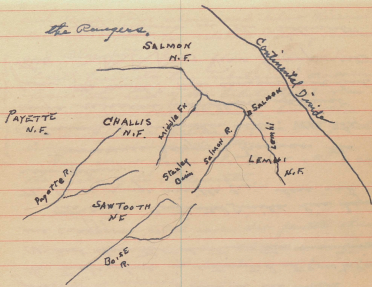 the Rangers.
SALMON
N.F.
Continental Divide
PAYETTE
N.F.
CHALLIS
N.F.
Middle Fk
SALMON
Salmon R.
Lemhi
LEMHI
N.F.
Stanley
Basin
Payette R.
SAWTOOTH
NF
BOISE
R.